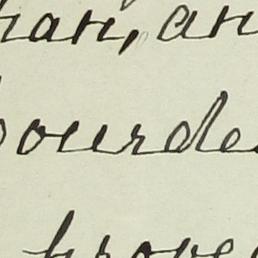 han, an
ourde
prove